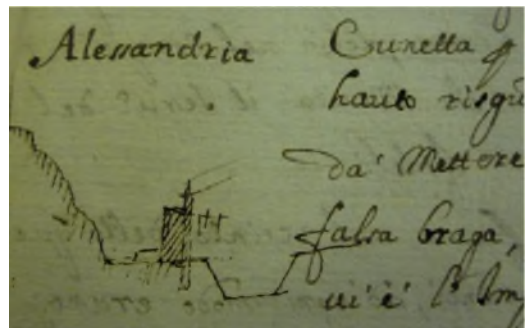 Alessandria Crunetta
hauto risgu
da' Mettere
falsa braga,
ui è l' Im